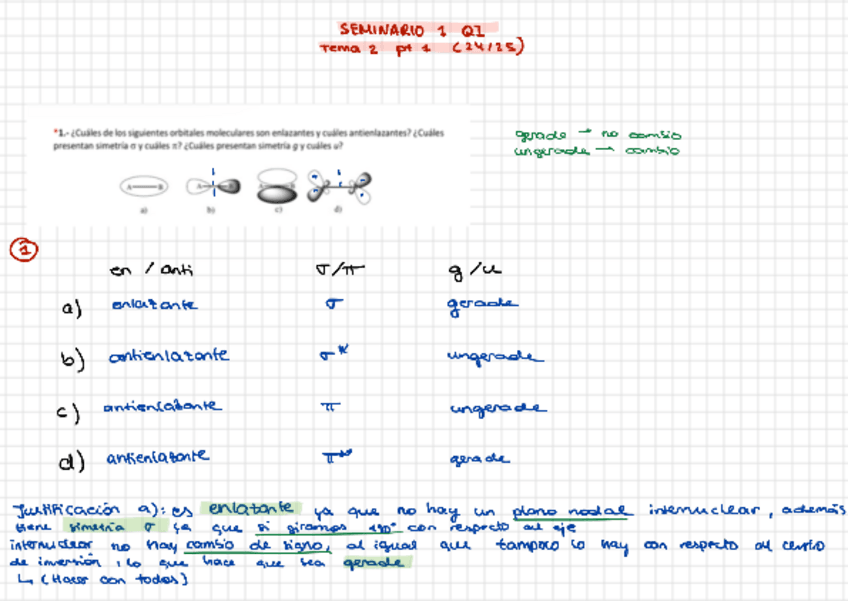 SEMINARIO 1 QI
Tema 2 pt 1 (24/25)
*1.- ¿Cuáles de los siguientes orbitales moleculares son enlazantes y cuáles antienlazantes? ¿Cuáles
presentan simetría σ y cuáles π? ¿Cuáles presentan simetría g y cuáles u?
gerade → no cambio
ungerade → cambio
A B
a) b) c) d)
1
en / anti σ/π g/u
a) enlazante σ gerade
b) antienlazante σ* ungerade
c) antienlazante π ungerade
d) antienlazante π* gerade
Justificación a): es enlazante ya que no hay un plano nodal internuclear, además
tiene simetría σ ya que si giramos 180° con respecto al eje
internuclear no hay cambio de signo, al igual que tampoco lo hay con respecto al centro
de inversión, lo que hace que sea gerade
↳ (Hacer con todos)